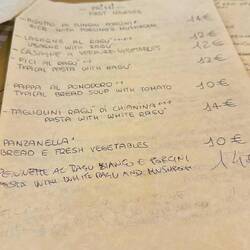 - PRIMI -
FIRST COURSES
- RISOTTO AI FUNGHI PORCINI 14 €
RICE WITH PORCINI'S MUSHROOM
- LASAGNE AL RAGÙ 12 €
LASAGNE WITH RAGÙ
12 €
- PICI AL RAGÙ 12 €
TYPICAL PASTA WITH RAGÙ
- PAPPA AL POMODORO 10 €
TYPICAL BREAD SOUP WITH TOMATO
- TAGLIOLINI RAGÙ DI CHIANINA 14 €
PASTA WITH WHITE RAGÙ
PANZANELLA 10 €
BREAD E FRESH VEGETABLES
PENNETTE AL RAGU BIANCO E PORCINI 14 €
PASTA WITH WHITE RAGU AND MUSHROOM